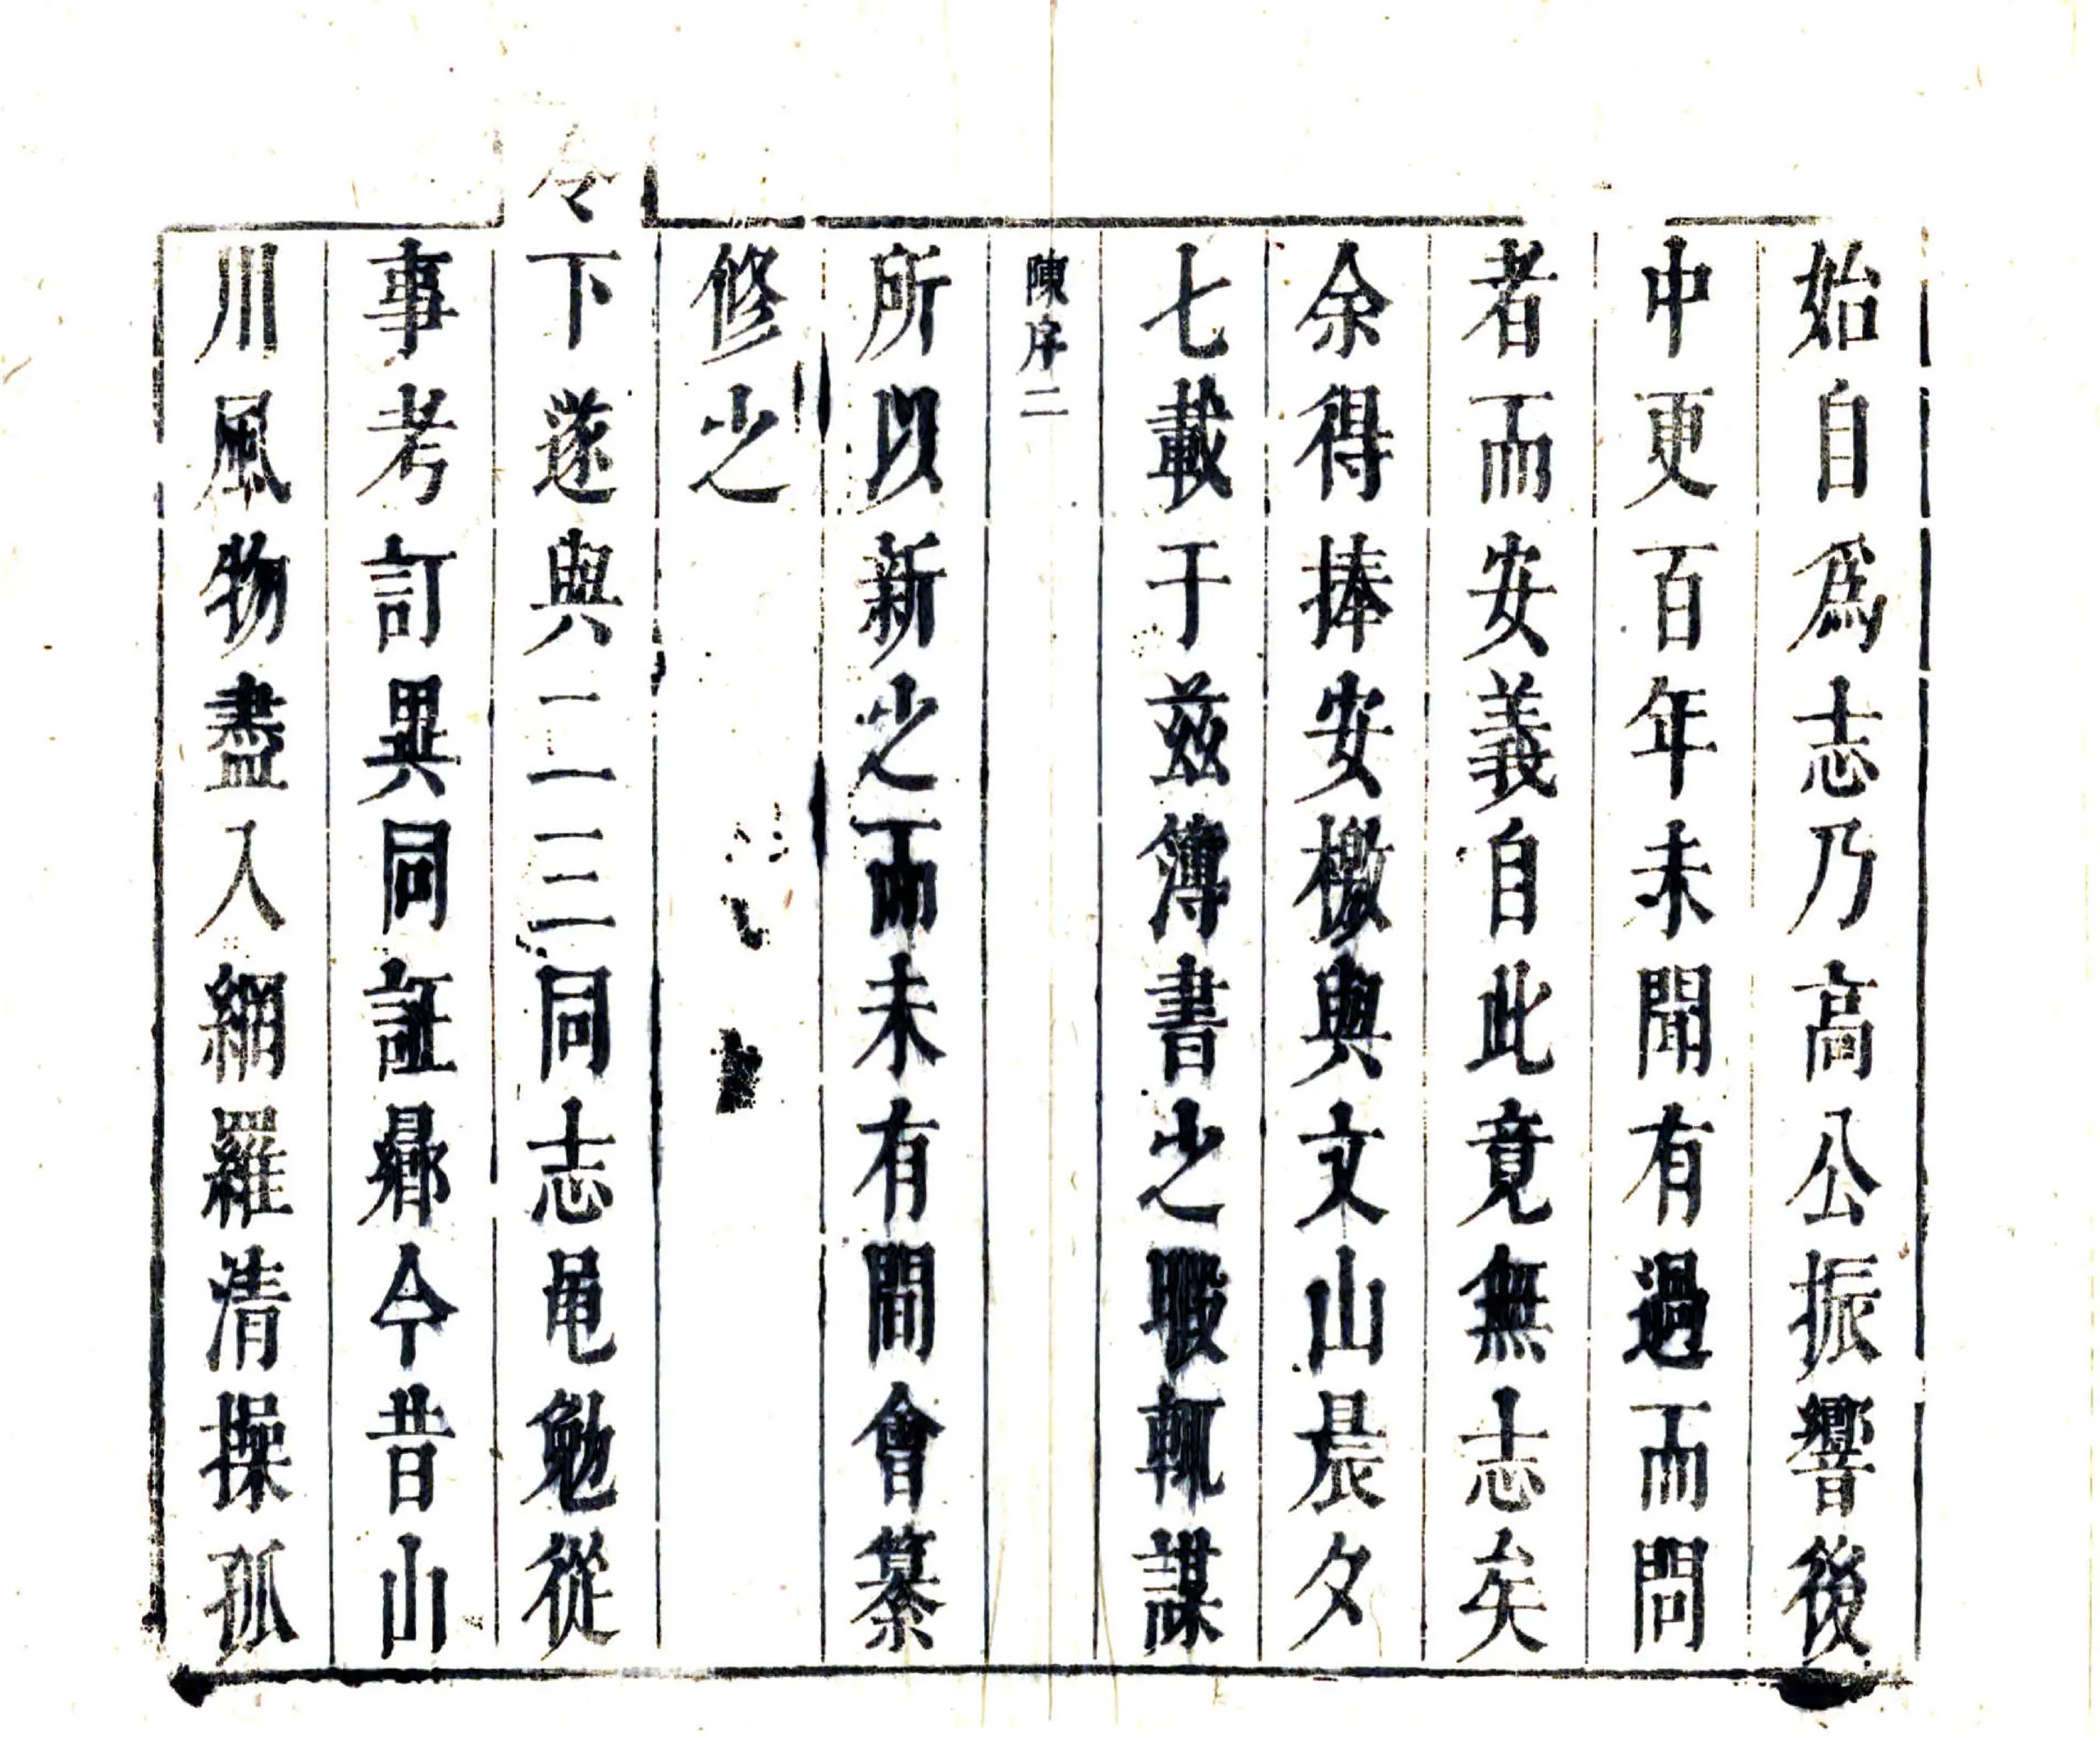 始自爲志乃高公振響後
中更百年未聞有過而問
者而安義自此竟無志矣
余得捧安檄與文山晨夕
七載于茲簿書之暇輒謀
陳序二
所以新之而未有間會纂
修之
令下遂與二三同志黽勉從
事考訂異同証曏今昔山
川風物盡入網羅清操孤